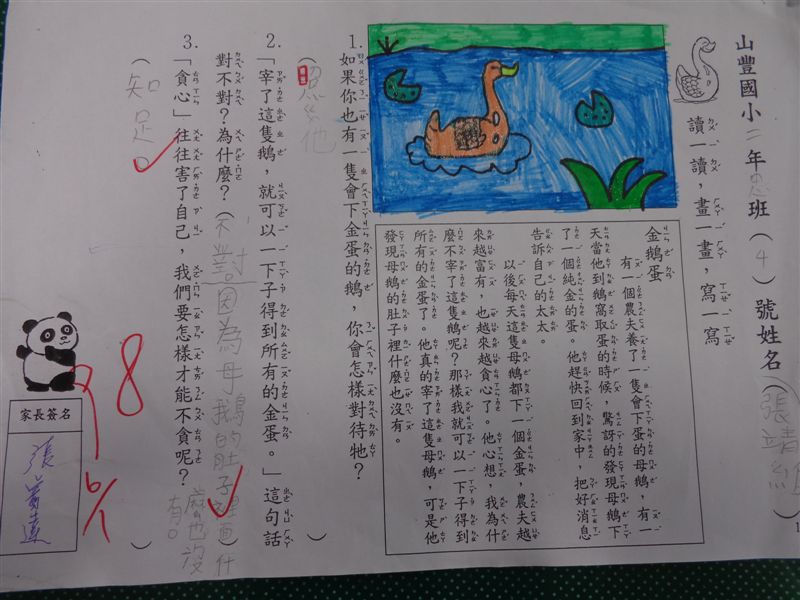 山豐國小二年忠班(4)號姓名(張靖維
讀一讀,畫一畫,寫一寫
金鵝蛋
有一個農夫養了一隻會下蛋的母鵝,有一
天當他到鵝窩取蛋的時候,驚訝的發現母鵝下
了一個純金的蛋。他趕快回到家中,把好消息
告訴自己的太太。
以後每天這隻母鵝都下一個金蛋,農夫越
來越富有,也越來越貪心了。他心想,我為什
麼不宰了這隻鵝呢?那樣我就可以一下子得到
所有的金蛋了。他真的宰了這隻母鵝,可是他
發現母鵝的肚子裡什麼也沒有。
1. 如果你也有一隻會下金蛋的鵝,你會怎樣對待牠?
(照ㄍㄨ他)
2. 「宰了這隻鵝,就可以一下子得到所有的金蛋。」這句話
對不對?為什麼?(不對因為母鵝的肚子裡面什
麼也沒有。)
3. 「貪心」往往害了自己,我們要怎樣才能不貪呢?
(知足。)
98
家長簽名
1